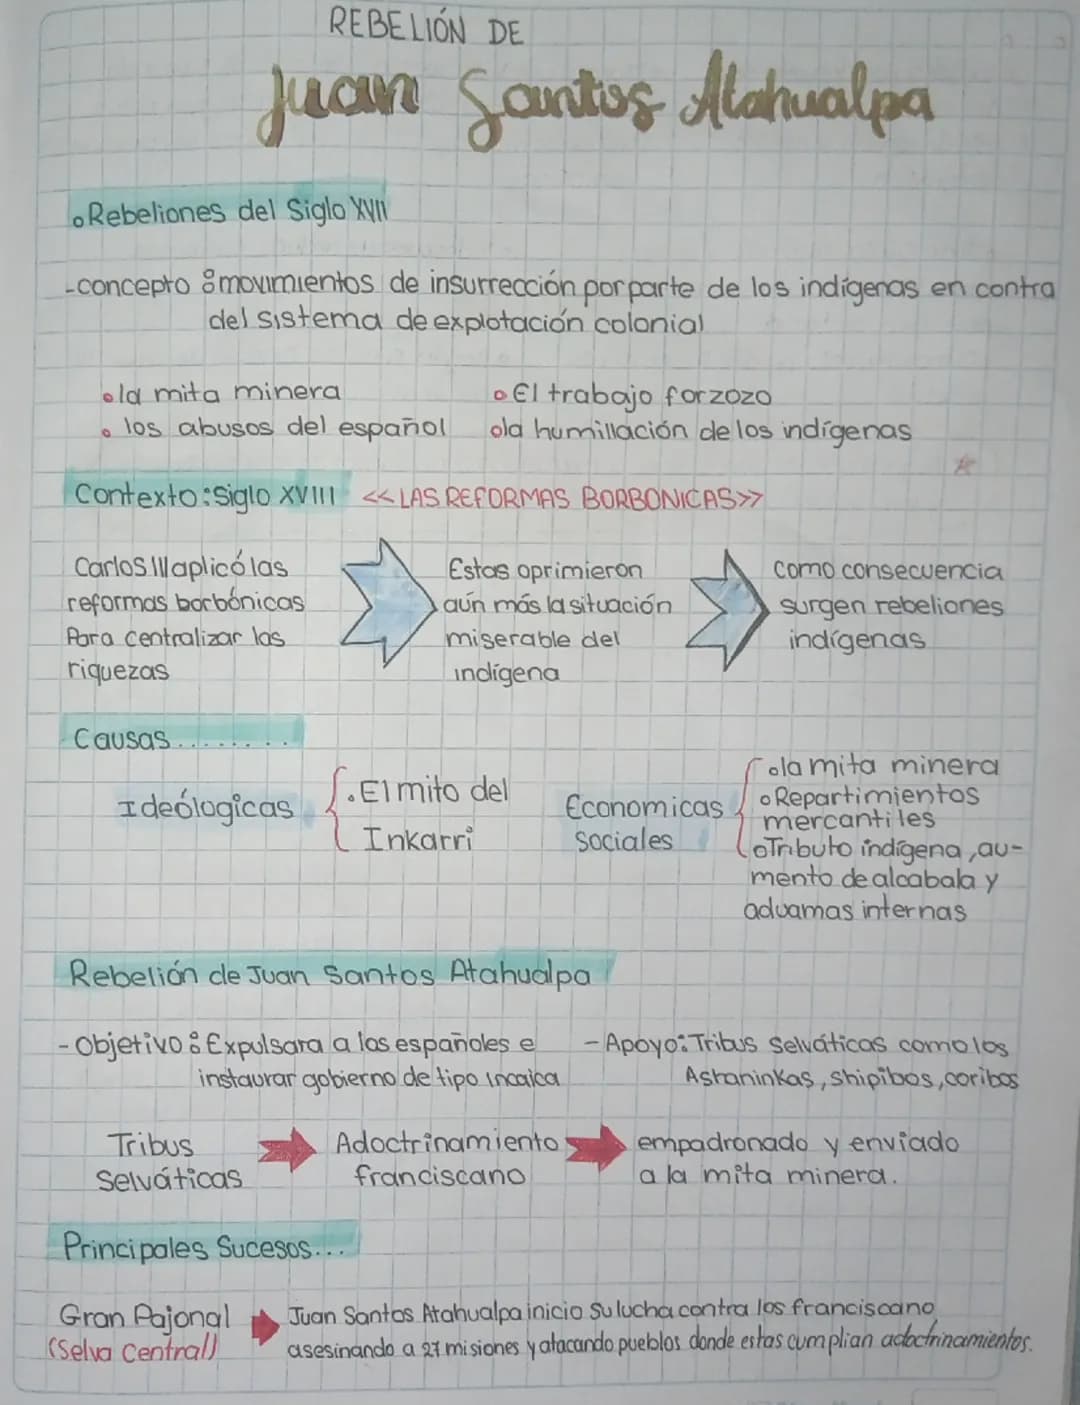 REBELIÓN DE
Juan Santos Atahualpa
Rebeliones del Siglo XVII
-concepto: movimientos de insurrección por parte de los indígenas en contra
del sistema de explotación colonial
• la mita minera
• El trabajo forzozo
• los abusos del español
• la humillación de los indígenas
Contexto: Siglo XVIII <<LAS REFORMAS BORBONICAS>>
Carlos III aplicó las
reformas borbónicas
Para centralizar las
riquezas
Estas oprimieron
aún más la situación
miserable del
indígena
como consecuencia
surgen rebeliones
indígenas
Causas........
Ideólogicas
• El mito del
Inkarri
Economicas
sociales
• la mita minera
• Repartimientos
mercantiles
• Tributo indígena, au-
mento de alcabala y
aduamas internas
Rebelión de Juan Santos Atahualpa
- Objetivo: Expulsara a los españoles e
instaurar gobierno de tipo incaica
- Apoyo: Tribus selváticas como los
Ashaninkas, shipibos, coribos
Tribus
Selváticas
Adoctrinamiento
franciscano
empadronado y enviado
a la mita minera.
Principales Sucesos...
Gran Pajonal
(Selva Central)
Juan Santos Atahualpa inicio su lucha contra los franciscano
asesinando a 27 misiones y atacando pueblos donde estas cumplian adoctrinamientos.